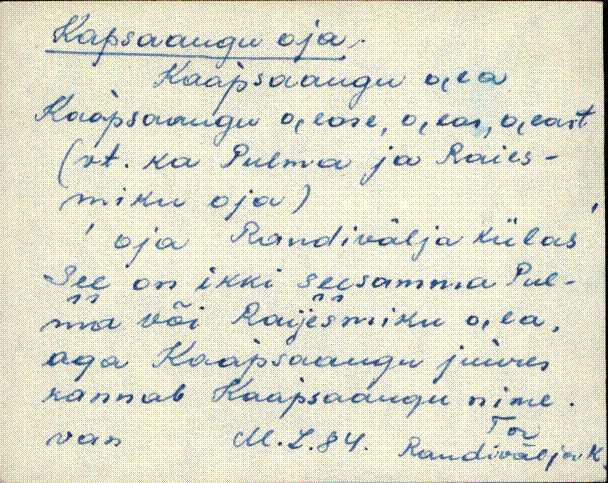 Kapsaaugu oja.
Kaapsaaugu o,ea
Kaapsaaugu o,ease, o,eas, o,east
(vt. ka Pulma ja Raies-
miku oja)
' oja Randivälja külas '
See on ikki seesamma Pul-
ma või Raijesmiku o,ea,
aga Kaapsaaugu juures
kannab Kaapsaaugu nime.
van M.L.84. Tor
Randivälja k